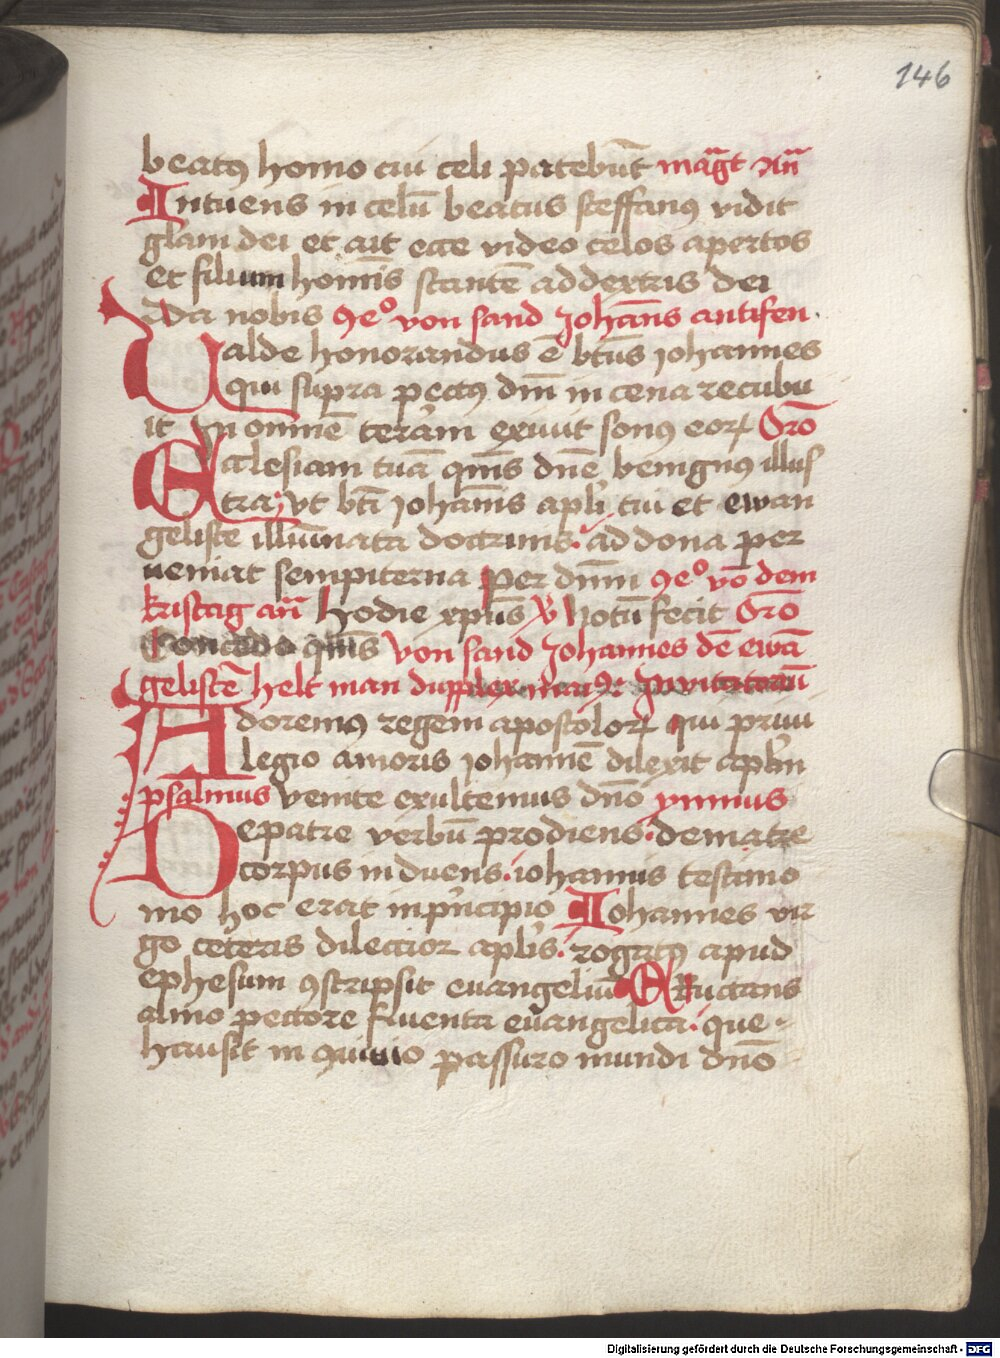 146
beatꝰ homo cui celi patebūt mag̃t an̄
Intuens in celū beatus steffanꝰ vidit
gl̄am dei et ait ecce video celos apertos
et filium homīs stantē ad dextris dei
Da nobis ꝯeº von sand Johan̄s antifen
Valde honorandus ē bt̄us johannes
qui supra pectꝰ dm̄ in cena recubu
it In omnē terram exiuit sonꝰ eoꝝ Oro̅
Ecclesiam tuā qm̄s dn̄e benignꝰ illus
tra: vt bt̄i johan̄is apl̄i tui et ewan
geliste illumīata doctrinis: ad dona per
ueniat sempiterna Per dnm̄ ꝯeº vō dem
kristag an̄ Hodie xp̄us ℣ Notū fecit Oro̅
Concede qm̄s Von sand Johannes dē ewā
gelistē helt man dupplex Inuitatoriū
Adoremꝰ regem apostoloꝝ qui priui
legio amoris johannē dilexit apl̄m
psalmus venite exultemus dn̄o ymnus
De patre verbū prodiens: de matre
corpus induens: iohannis testimo
nio hoc erat in prīcipio Iohannes vir
go ceteris dilectior apl̄is: rogatꝰ apud
ephesum ꝯscripsit euangeliū Eructans
almo pectore fluenta euangelica: que
hausit in quiuio passuro mundi dn̄o
Digitalisierung gefördert durch die Deutsche Forschungsgemeinschaft - DFG